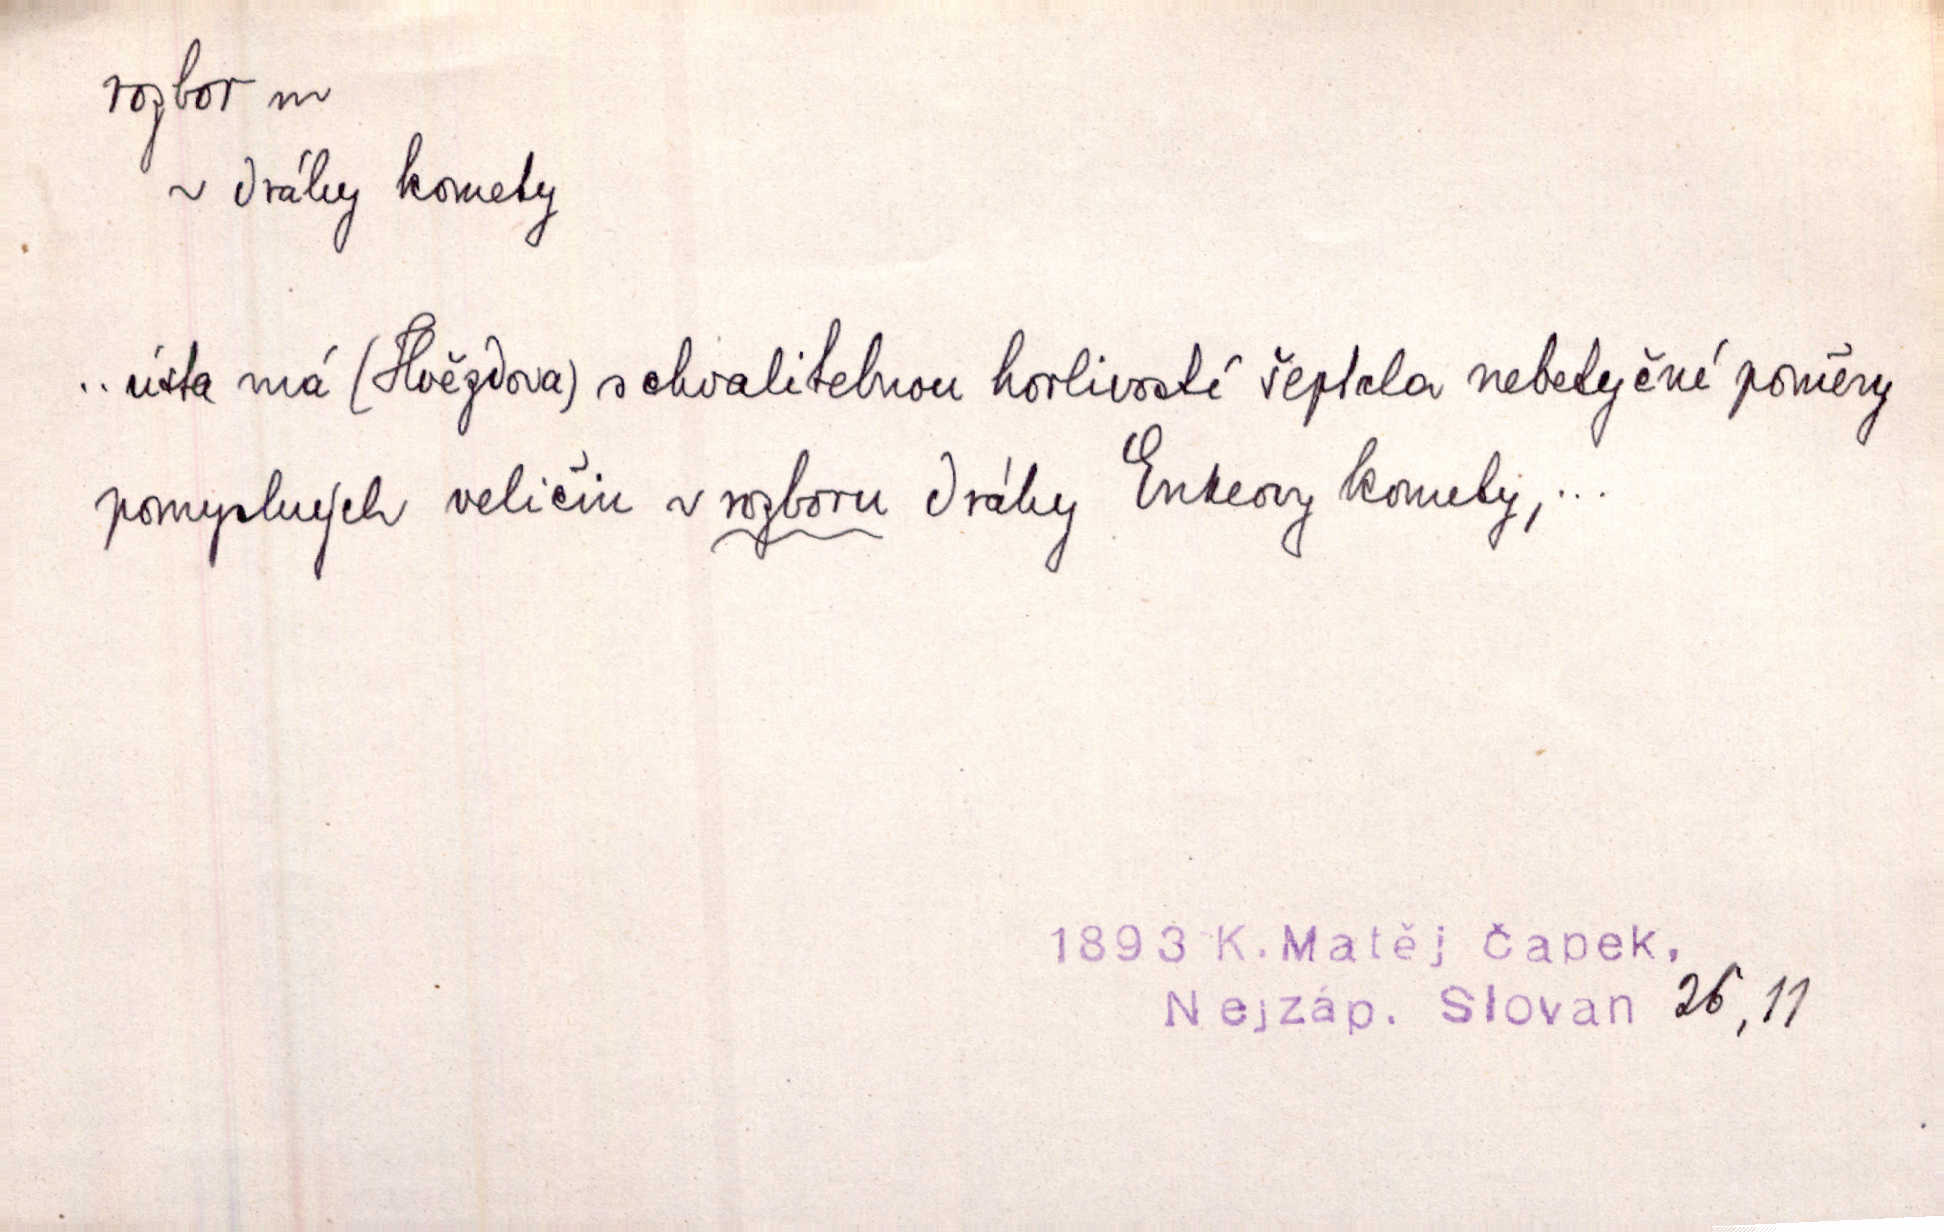 rozbor m
~ dráhy komety
.. ústa má (Hvězdova) s chvalitebnou horlivostí šeptala nebetyčné poměry
pomyslných veličin v rozboru dráhy Enkeovy komety, ...
1893 K. Matěj Čapek,
Nejzáp. Slovan 26, 11